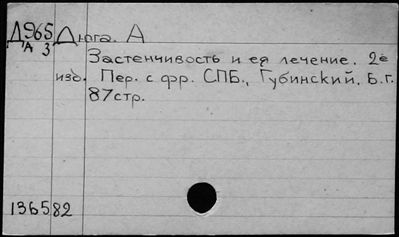 Д965 Дюга. А
А 3
Застенчивость и ея лечение. 2е
изд. Пер. с фр. СПБ., Губинский, б.г.
87стр.
136582